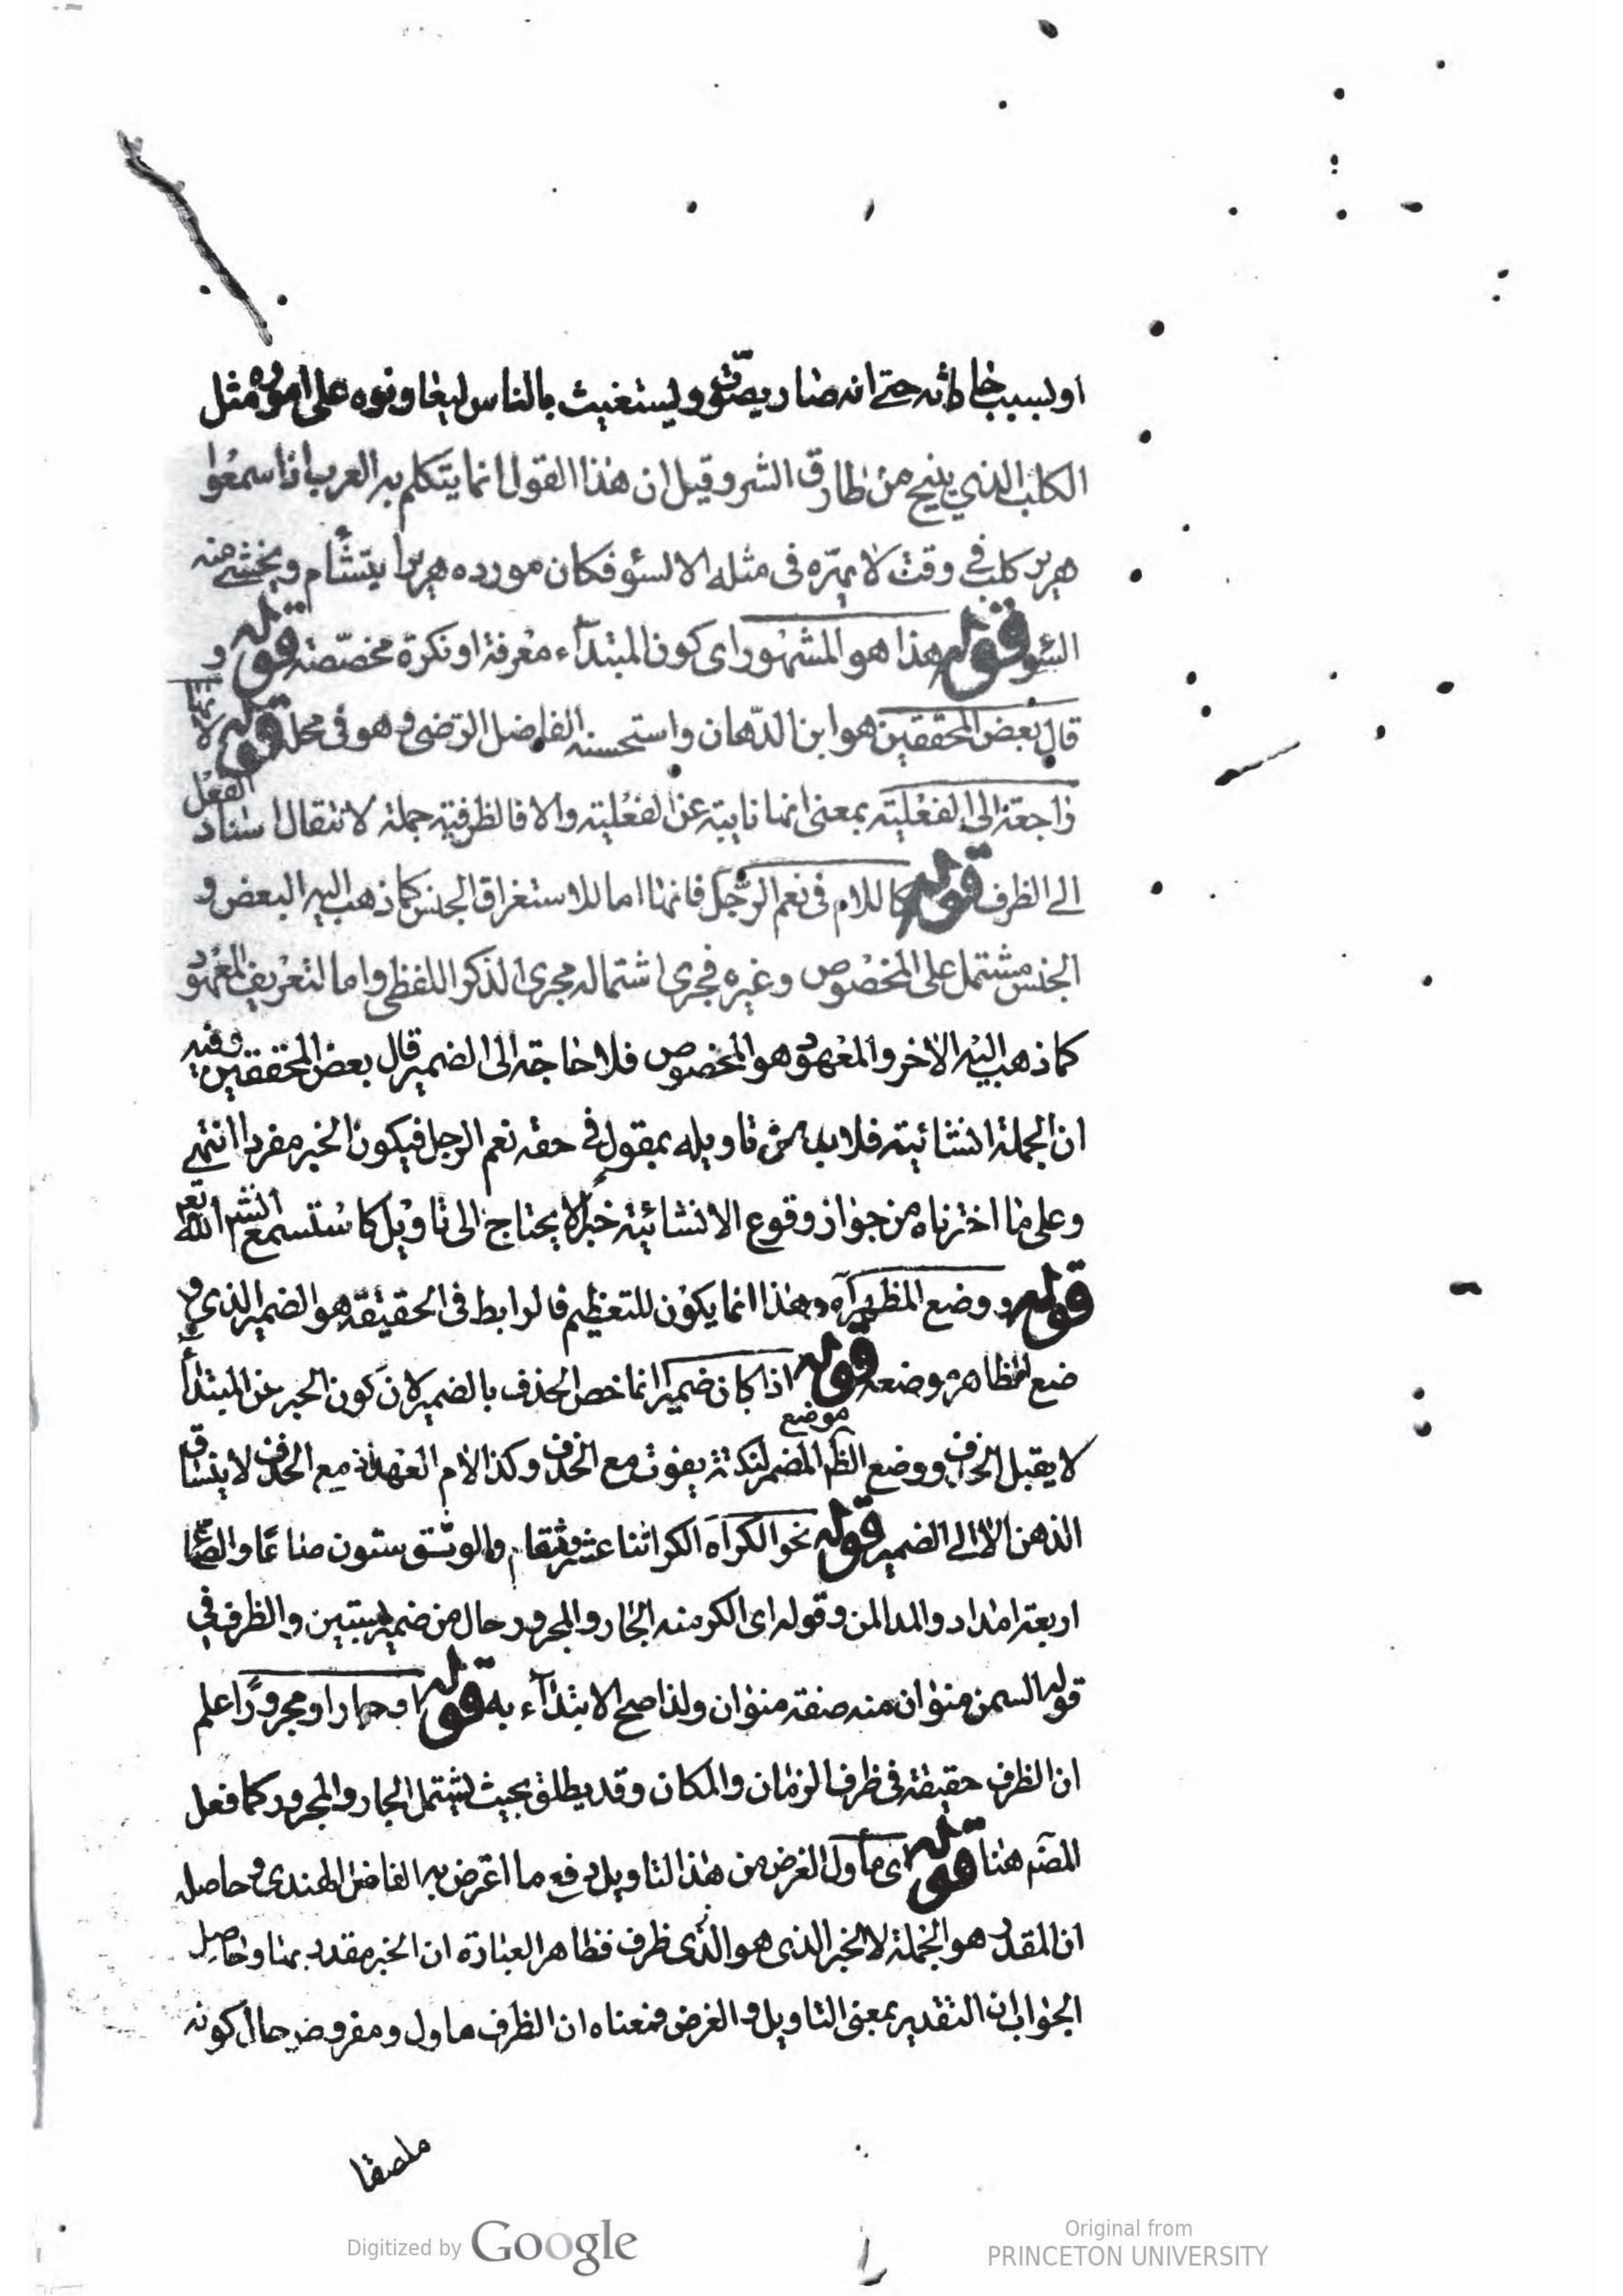 او لسبب حادثه حتى انه صار يصوّت ويستغيث بالناس ليعاونوه على اموره مثل
الكلب الذي ينبح من طارق الشر وقيل ان هذا القول انما يتكلم به العرب اذا سمعوا
هرير كلب في وقت لا يهرّه فى مثله الا لسؤ فكان مورده هريرا يتشأم ويخشى منه
السؤ قوله هذا هو المشهور اى كون المبتدآء معرفة او نكرة مخصّصة قوله و
قال بعض المحققين هو ابن الدّهان واستحسنه الفاضل الرّضى ره وهو فى محله قوله لانها
راجعة الى الفعلية بمعنى انها نايبة عن الفعلية والا فالظرفية جملة لانتقال اسناد الفعل
الى الظرف قوله كاللام فى نعم الرّجل فانها اما للاستغراق الجنس كما ذهب اليه البعض و
الجنس مشتمل على المخصوص وغيره فجرى اشتماله مجرى الذكر اللفظى واما لتعريف المعهود
كما ذهب اليه الاخر والمعهود هو المخصوص فلا حاجة الى الضمير قال بعض المحققين وفيه
ان الجملة انشائية فلابد من تاويله بمقول في حقه نعم الرجل فيكون الخبر مفردا انتهى
وعلى ما اخترناه من جواز وقوع الانشائية خبرا لا يحتاج الى تاويل كما ستسمع انش الله تع
قوله ووضع المظهر آه وهذا انما يكون للتعظيم فالرابط فى الحقيقة هو الضمير الذي و
ضع الظاهر موضعه قوله اذا كان ضميرا انما خص الحذف بالضمير لان كون الخبر عن المبتدأ
لا يقبل الحذف ووضع الظ موضع المضمر لنكتة يفوت مع الحذف وكذا لام العهد اذ مع الحذف لا ينساق
الذهن الا الى الضمير قوله نحو الكر آه الكر اثنا عشر وسقا م والوسق ستون صاعًا والصّاع
اربعة امداد والمد المن وقوله اى الكر منه الجار والمجرور حال من ضمير بستين والظرف في
قوله السمن منوان منه صفة منوان ولذا صح الابتدآء به قوله او جارا ومجرورًا اعلم
ان الظرف حقيقة فى ظرف الزمان والمكان وقد يطلق بحيث يشتمل الجار والمجرور كما فعل
المصّ هنا قوله اى مأول الغرض من هذا التاويل دفع ما اعترض به الفاضل الهندى ره وحاصله
ان المقدر هو الجملة لا الخبر الذى هو الذى ظرف فظاهر العبارة ان الخبر مقدر بها وحاصل
الجواب ان التقدير بمعنى التاويل والغرض فمعناه ان الظرف ماول ومفروض حال كونه
ملصقا
Digitized by Google
Original from
PRINCETON UNIVERSITY